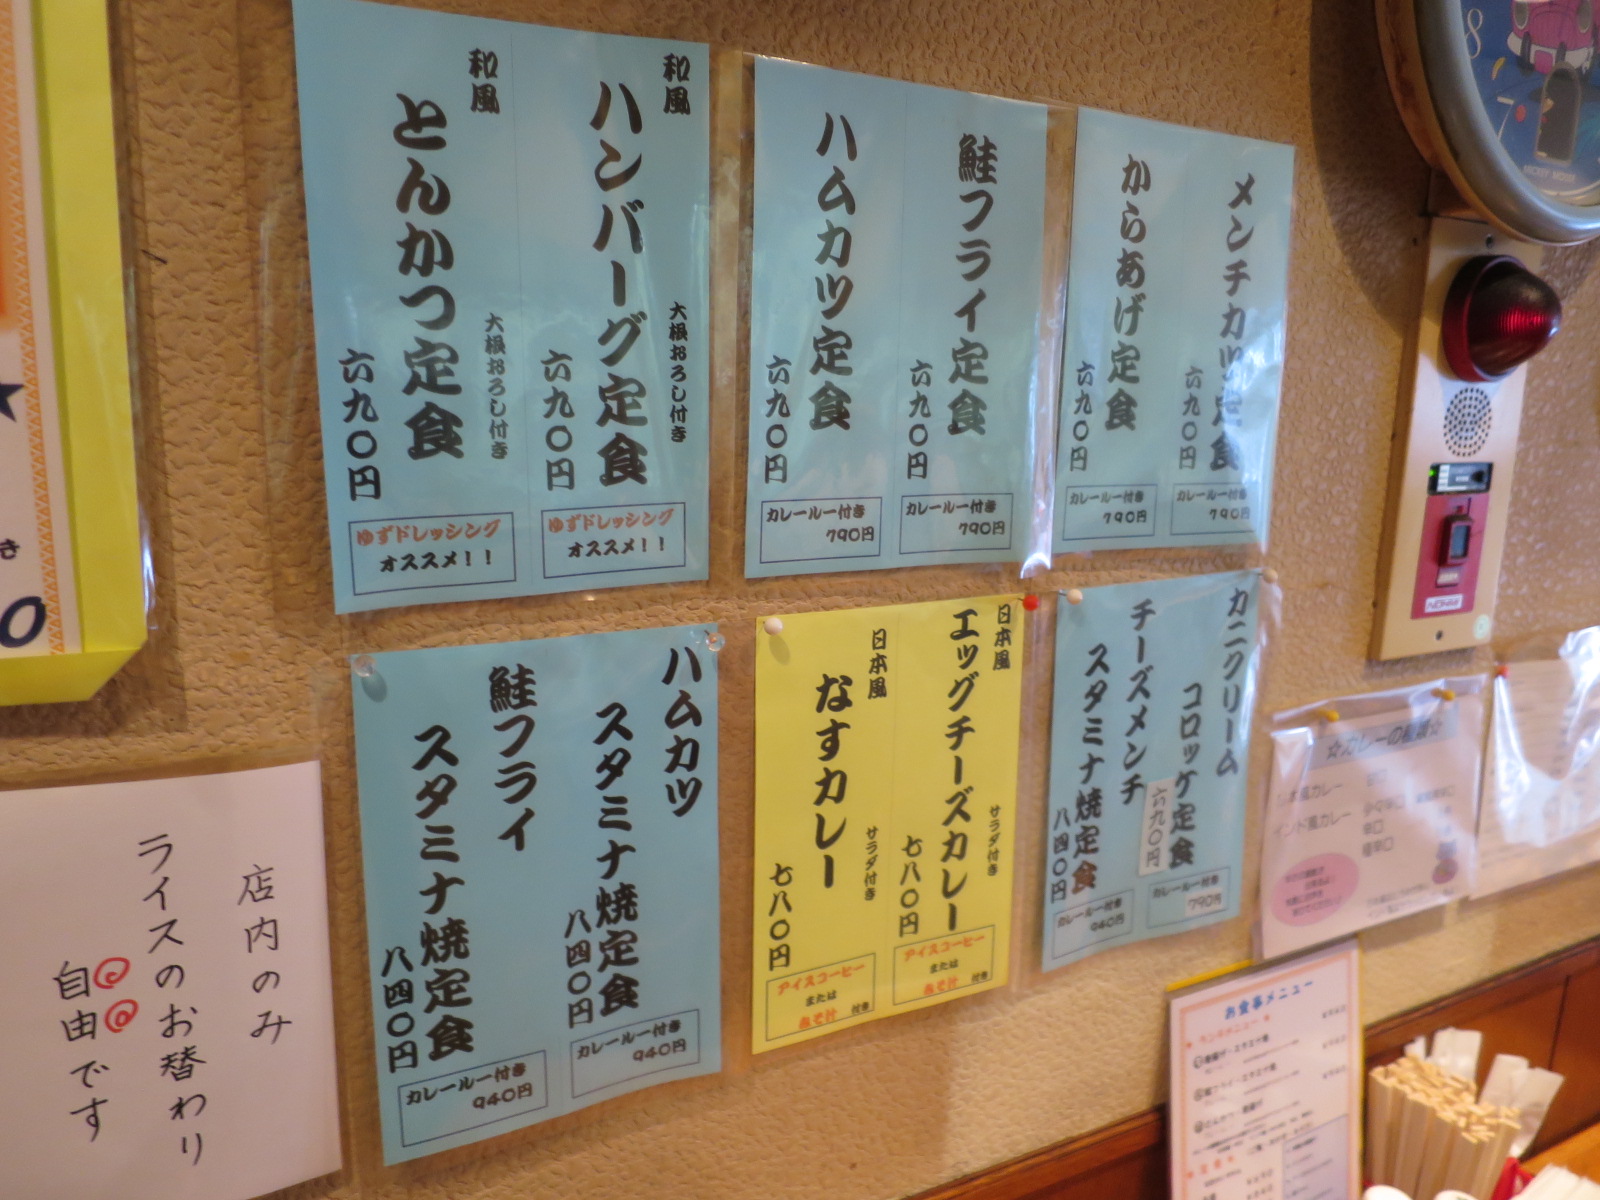 和風
ハンバーグ定食
大根おろし付き
六九〇円
ゆずドレッシング
オススメ!!
和風
とんかつ定食
大根おろし付き
六九〇円
ゆずドレッシング
オススメ!!
鮭フライ定食
六九〇円
カレールー付き
790円
ハムカツ定食
六九〇円
カレールー付き
790円
メンチカツ定食
六九〇円
カレールー付き
790円
からあげ定食
六九〇円
カレールー付き
790円
ハムカツ
スタミナ焼定食
八四〇円
カレールー付き
940円
鮭フライ
スタミナ焼定食
八四〇円
カレールー付き
940円
日本風
エッグチーズカレー
サラダ付き
七八〇円
アイスコーヒー
または
みそ汁 付き
日本風
なすカレー
サラダ付き
七八〇円
アイスコーヒー
または
みそ汁 付き
カニクリーム
コロッケ定食
六九〇円
カレールー付き
790円
チーズメンチ
スタミナ焼定食
八四〇円
カレールー付き
940円
店内のみ
ライスのお替わり
自由です
インド風カレー
お食事メニュー